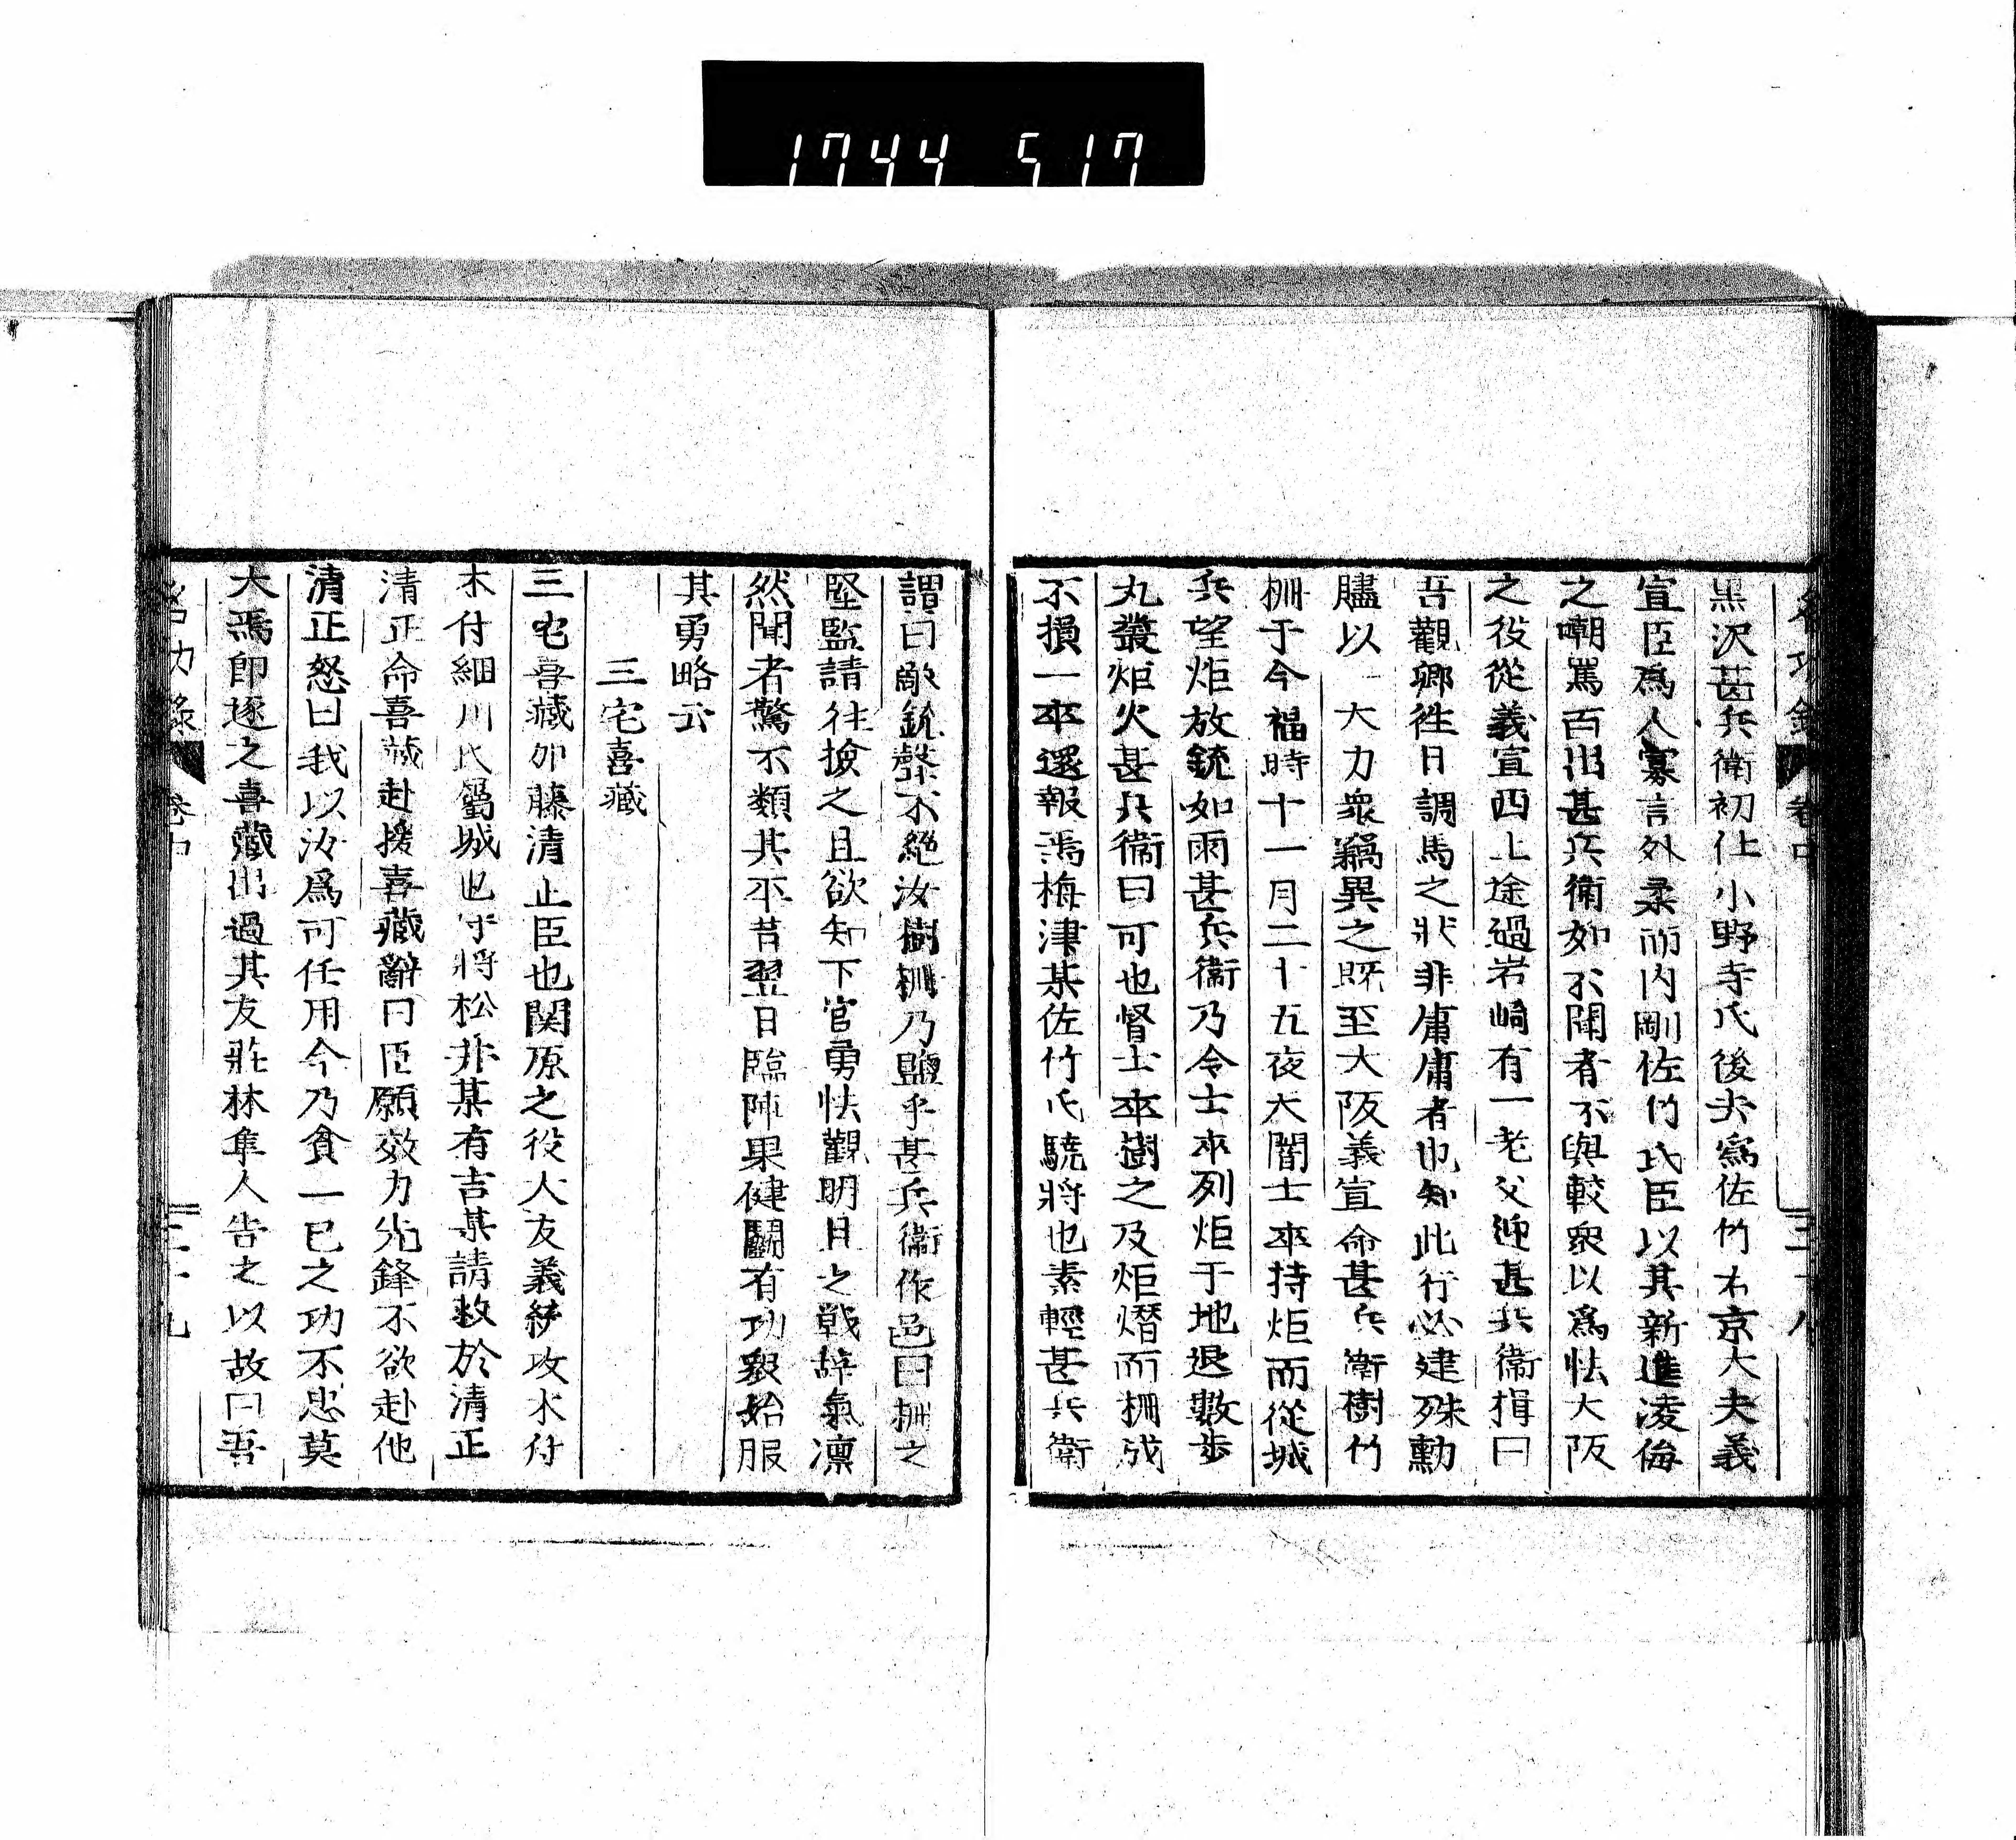 1744 517
黒沢甚兵衛初仕小野寺氏後去為佐竹右京大夫義
宣臣爲人寡言外柔而内剛佐竹氏臣以其新進凌侮
之嘲罵百出甚兵衛如不聞者不與較衆以爲怯大阪
之役從義宣西上途過岩崎有一老父迎甚兵衛揖曰
吾觀卿徃日調馬之狀非庸庸者也知此行必建殊勳
贐以一大力衆竊異之既至大阪義宣命甚兵衛樹竹
柵于今福時十一月二十五夜大闇士卒持炬而從城
兵望炬放銃如雨甚兵衛乃令士卒列炬于地退數歩
丸叢炬火甚兵衛曰可也督士卒樹之及炬熸而柵成
不損一卒還報焉梅津某佐竹氏驍將也素輕甚兵衛
謂曰敵銃聲不絶汝樹柵乃盬乎甚兵衛作色曰柵之
堅監請往撿之且欲知下官勇怯觀明日之戰辞氣凛
然聞者驚不類其平昔翌日臨陣果健鬭有功衆始服
其勇略云
三宅喜藏
三宅喜藏加藤清正臣也関原之役大友義統攻木付
木付細川氏屬城也守將松井某有吉某請救於清正
清正命喜藏赴援喜藏辭曰臣願效力先鋒不欲赴他
清正怒曰我以汝爲可任用今乃貪一已之功不忠莫
大焉卽逐之喜藏出過其友莊林隼人告之以故曰吾
名功録 卷中